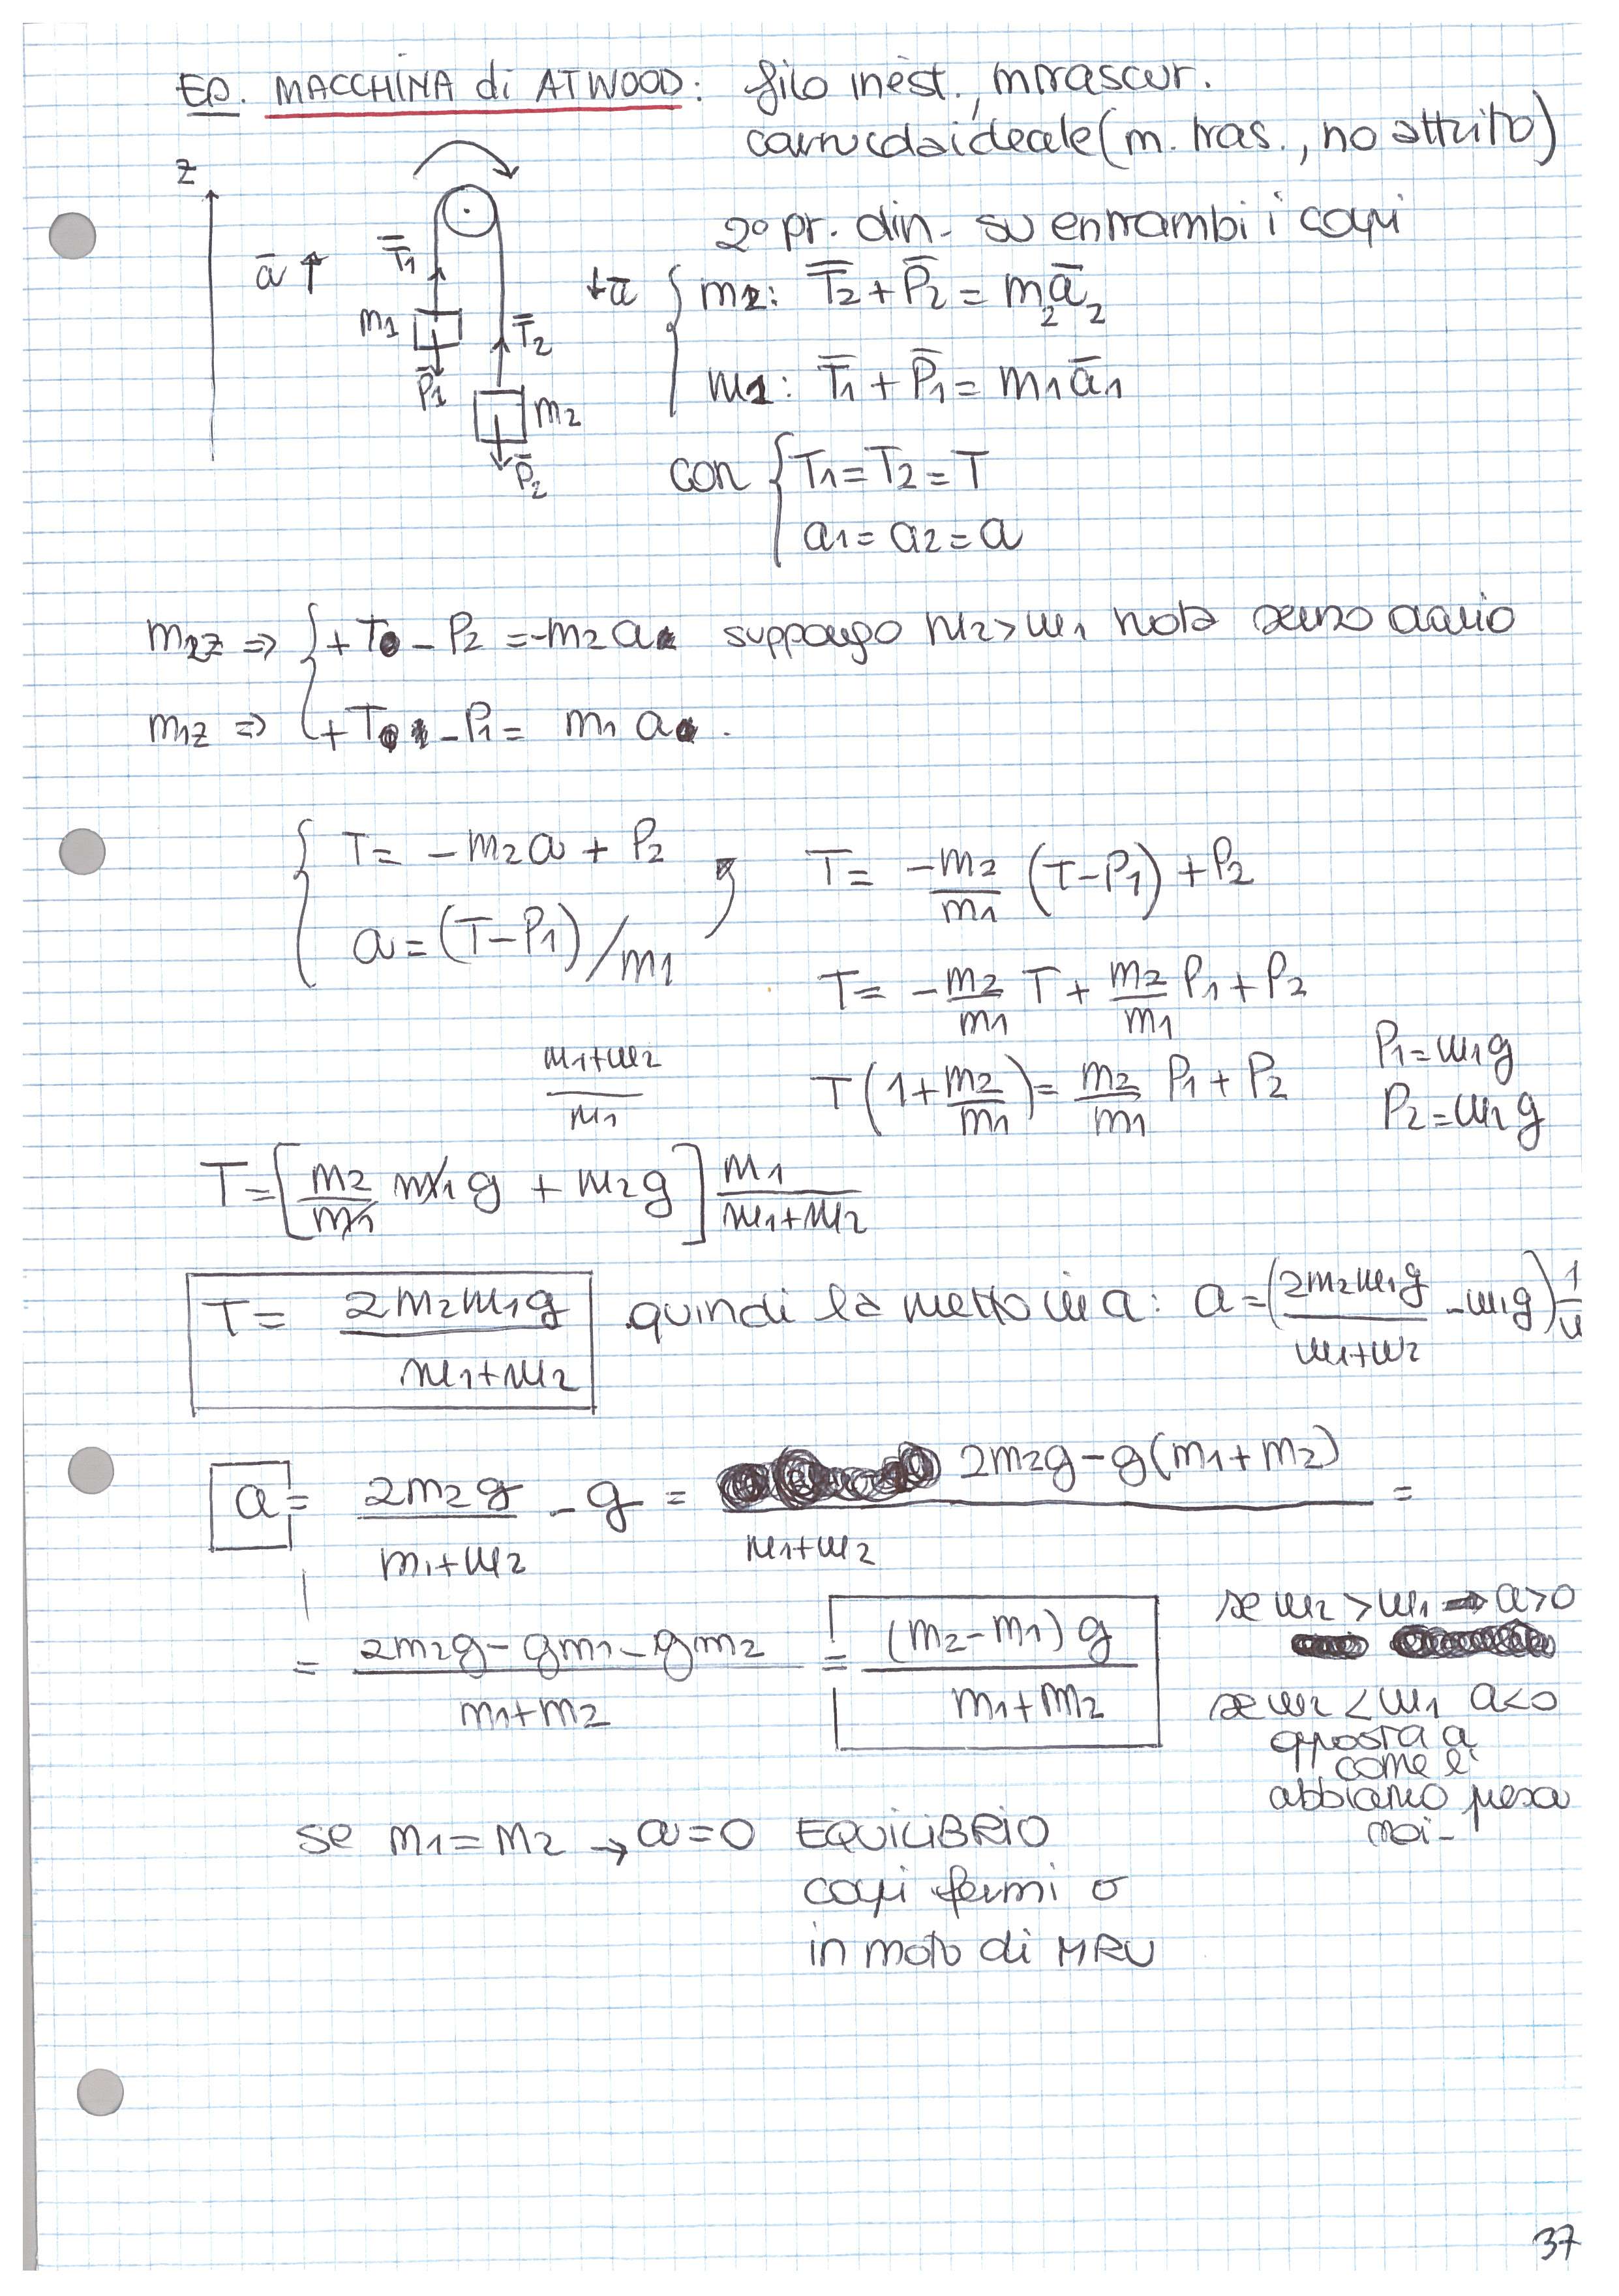 Es. MACCHINA di ATWOOD: filo inest., m trascur.
carrucola ideale (m. tras., no attrito)
z
2° pr. din. su entrambi i corpi
a̅ ↑
T̅1
m1
P̅1
T̅2
m2
P̅2
↓a̅
{ m2: T̅2 + P̅2 = m2 a̅2
m1: T̅1 + P̅1 = m1 a̅1
con { T1 = T2 = T
a1 = a2 = a
m2z ⇒ { +T - P2 = -m2 a suppongo m2 > m1 nota
m1z ⇒ +T - P1 = m1 a .
{ T = -m2 a + P2
a = (T - P1) / m1
T = -m2/m1 (T - P1) + P2
T = - m2/m1 T + m2/m1 P1 + P2
m1+m2 / m1
T (1 + m2/m1) = m2/m1 P1 + P2
P1 = m1 g
P2 = m2 g
T = [ m2/m1 m1 g + m2 g ] m1 / m1+m2
T = 2 m2 m1 g / m1+m2 quindi la metto in a: a = ( 2 m2 m1 g / m1+m2 - m1 g ) 1/
a = 2 m2 g / m1+m2 - g = 2 m2 g - g (m1 + m2) / m1+m2 =
= 2 m2 g - g m1 - g m2 / m1+m2 = (m2 - m1) g / m1+m2
se m2 > m1 → a>0
se m2 < m1 a<0
opposta a
come l'
abbiamo presa
noi -
se m1 = m2 → a = 0 EQUILIBRIO
corpi fermi o
in moto di MRU
37